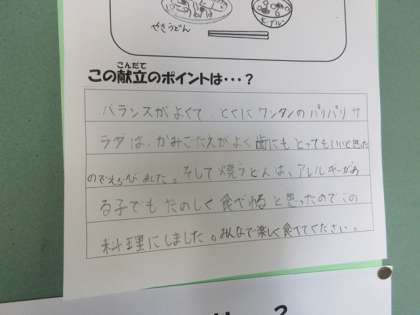 やきうどん
こんだて
この献立のポイントは・・・?
バランスがよくて、とくにワンタンのパリパリサ
ラダは、かみごたえがよく歯にもとってもいいと思った
のでえらびました。そして焼うどんは、アレルギーがあ
る子でもたのしく食べれると思ったのでこの
料理にしました。みんなで楽しく食べてください。